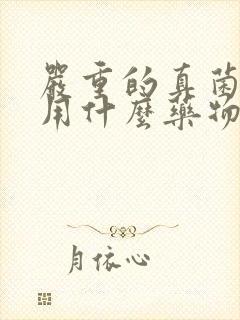 嚴重的真菌
用什麼藥物
月依心